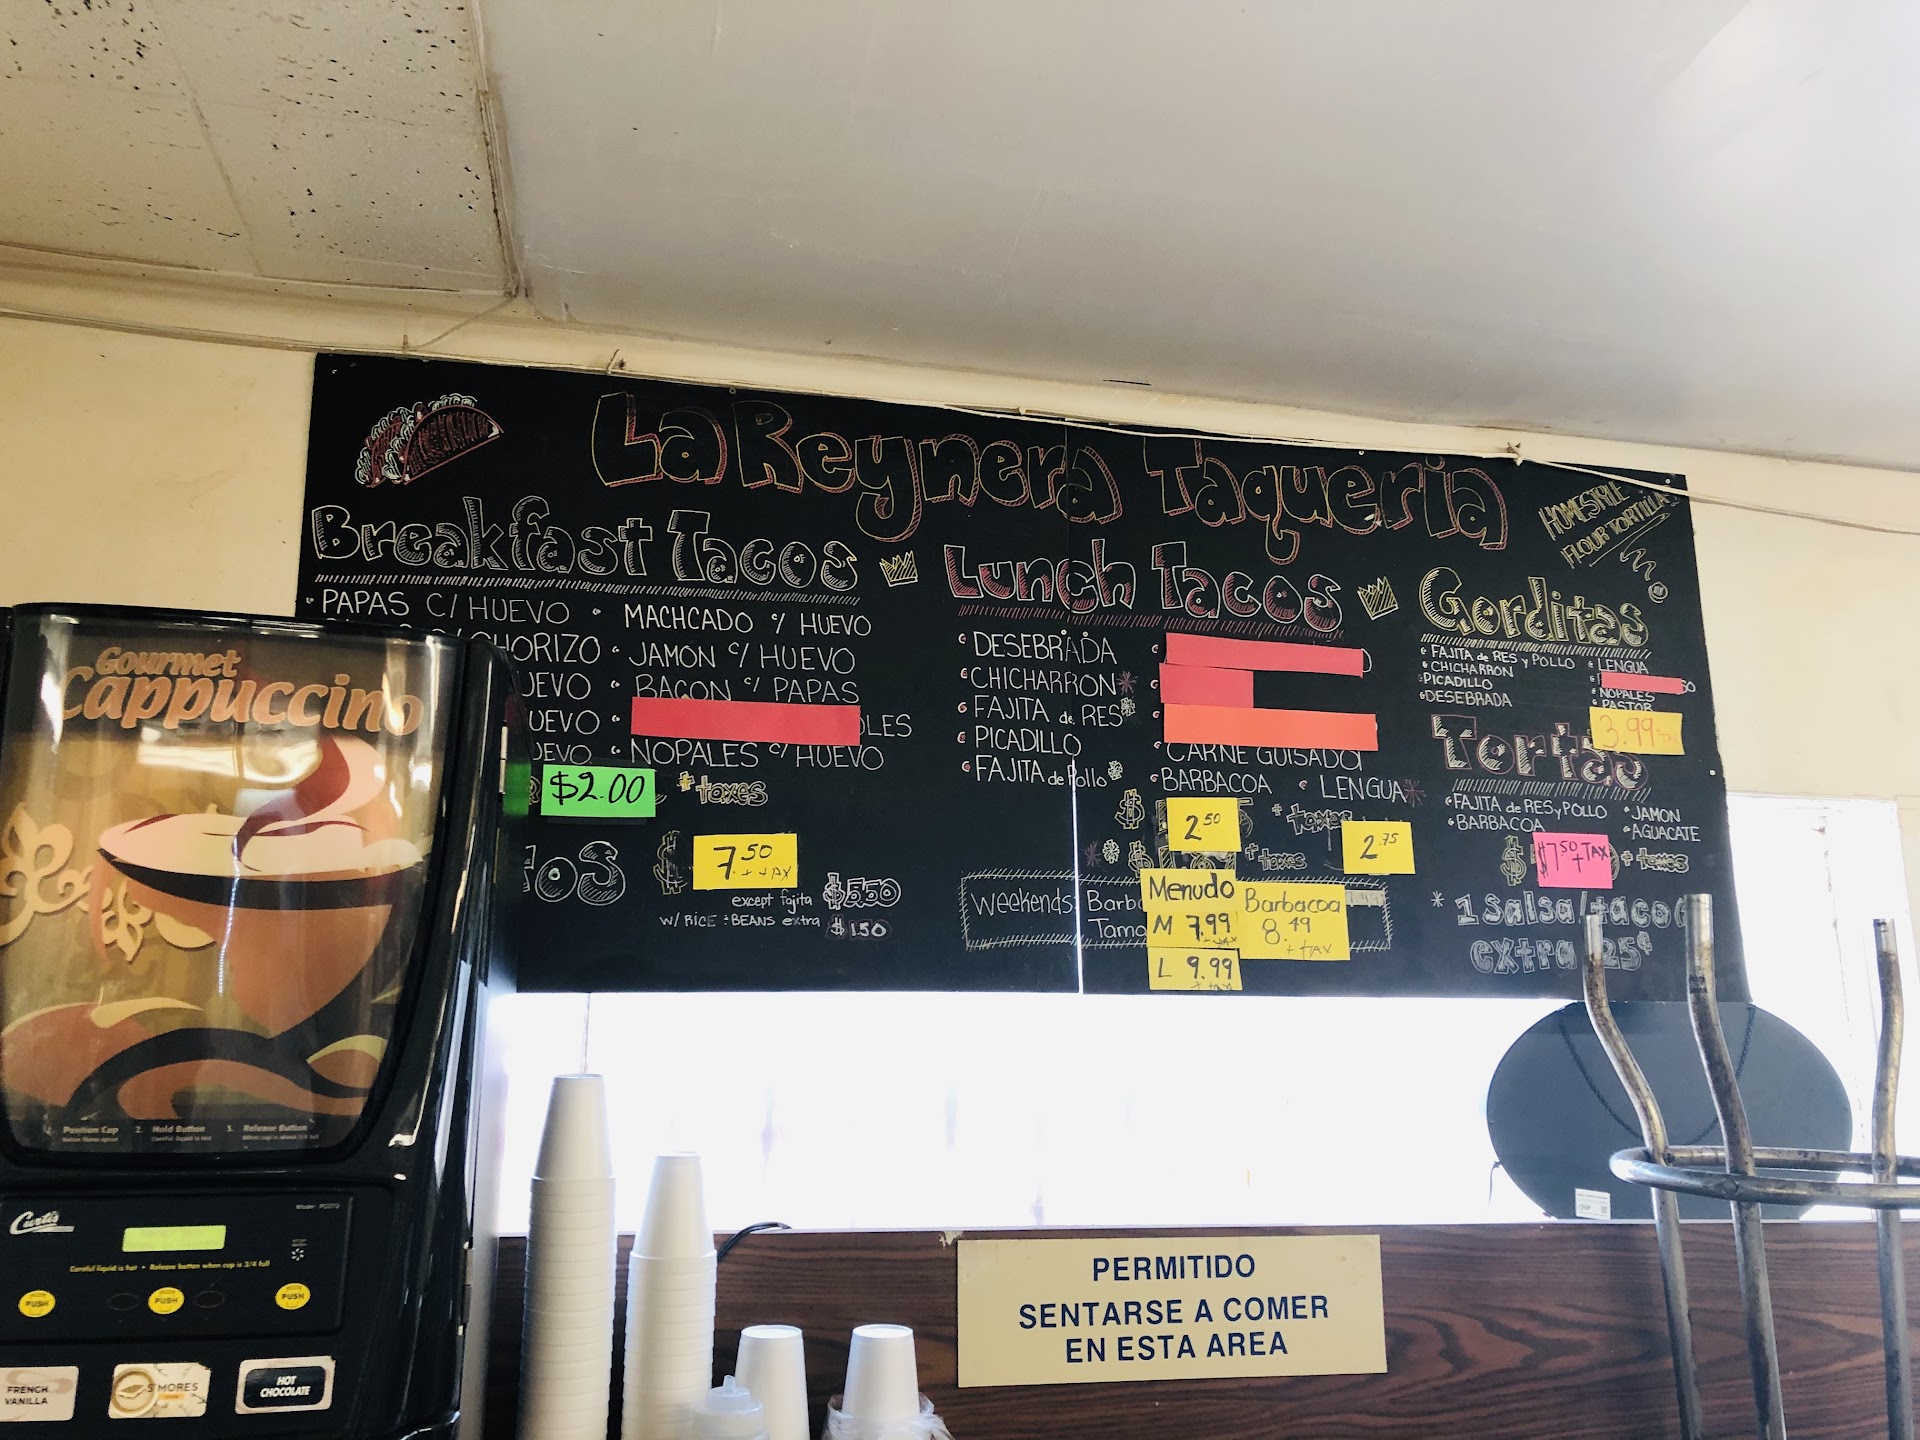 La Reynera Taqueria
HOMESTYLE
FLOUR TORTILLAS
Breakfast Tacos
PAPAS C/ HUEVO
CHORIZO
UEVO
UEVO
UEVO
MACHCADO C/ HUEVO
JAMON C/ HUEVO
BACON C/ PAPAS
OLES
NOPALES C/ HUEVO
$2.00
+ taxes
7.50
+ TAX
except fajita $5.50
W/ RICE & BEANS extra $1.50
Lunch Tacos
DESEBRADA
CHICHARRON*
FAJITA de RES*
PICADILLO
FAJITA de Pollo*
CARNE GUISADA
BARBACOA
LENGUA*
2.50
+ taxes
2.75
+ taxes
Weekends: Barb
Tama
Menudo
M 7.99
+ tax
L 9.99
+ tax
Barbacoa
8.49
+ TAX
Gorditas
FAJITA de RES y POLLO
CHICHARRON
PICADILLO
DESEBRADA
LENGUA
NOPALES
PASTOR
3.99 + TAX
Tortas
FAJITA de RES y POLLO
BARBACOA
JAMON
AGUACATE
$7.50
+ TAX
+ taxes
* 1 Salsa/taco
extra 25¢
Gourmet
Cappuccino
1. Position Cup
2. Hold Button
3. Release Button
Curtis
Careful liquid is hot • Release button when cup is 3/4 full
PUSH
PUSH
PUSH
FRENCH
VANILLA
S'MORES
HOT
CHOCOLATE
PERMITIDO
SENTARSE A COMER
EN ESTA AREA